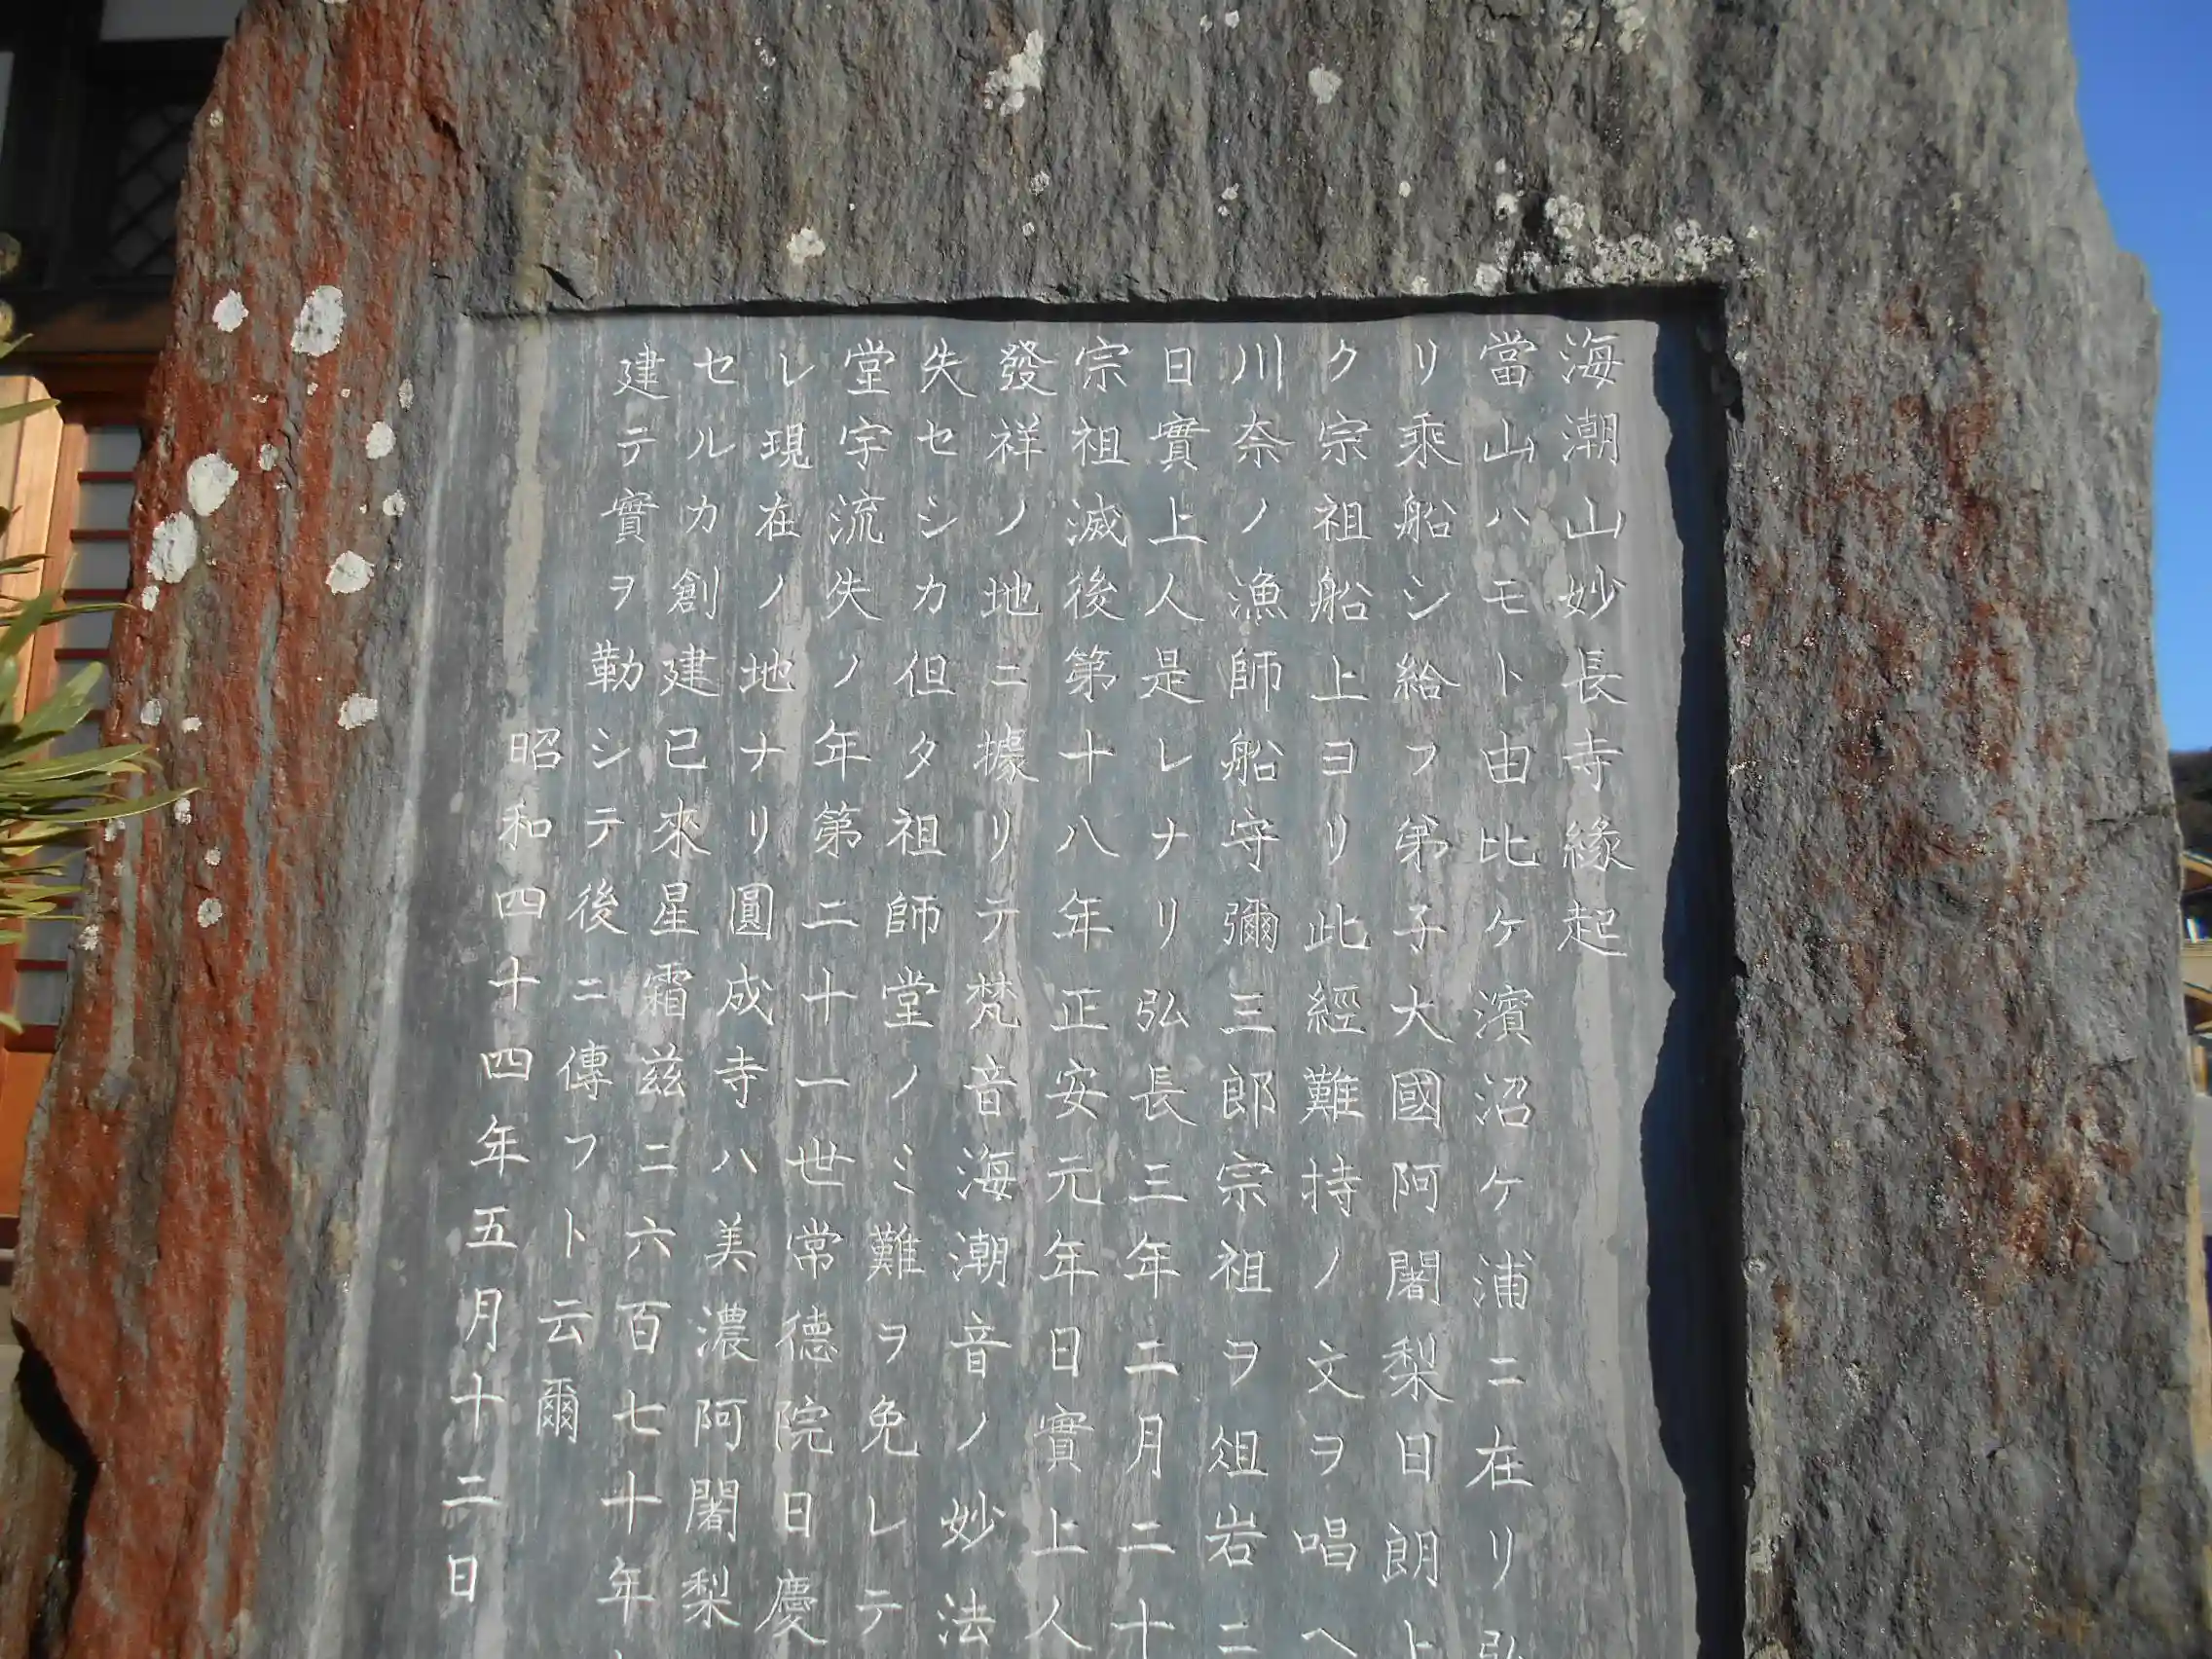 海潮山妙長寺縁起
當山ハモト由比ケ濱沼ケ浦ニ在リ弘
リ乘船シ給フ弟子大國阿闍梨日朗上
ク宗祖船上ヨリ此經難持ノ文ヲ唱ヘ
川奈ノ漁師船守彌三郎宗祖ヲ俎岩ニ
日實上人是レナリ弘長三年二月二十
宗祖滅後第十八年正安元年日實上人
發祥ノ地ニ據リテ梵音海潮音ノ妙法
失セシカ但タ祖師堂ノミ難ヲ免レテ
堂宇流失ノ年第二十一世常德院日慶
レ現在ノ地ナリ圓成寺ハ美濃阿闍梨
セルカ創建已來星霜茲二六百七十年
建テ實ヲ勒シテ後ニ傳フト云爾
昭和四十四年五月十二日